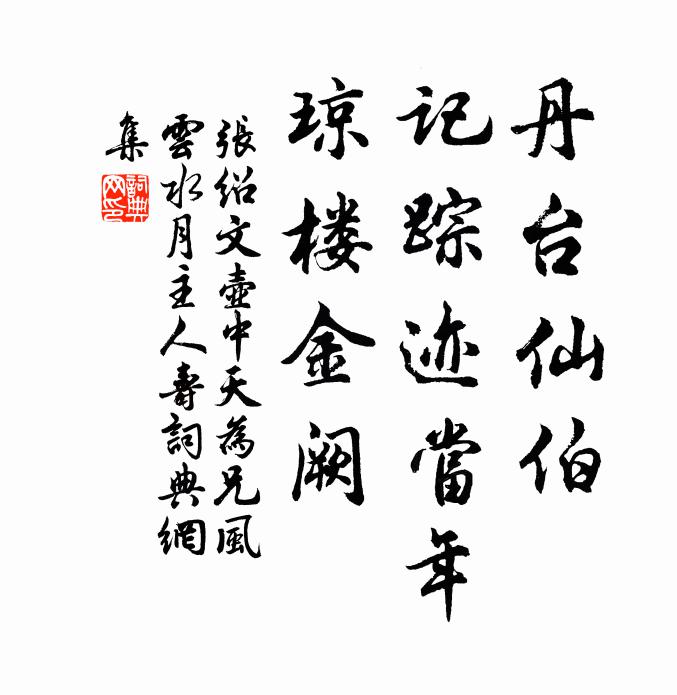 丹台仙伯
记踪迹當年
琼楼金阙
張绍文壺中天為兄風
雲水月主人壽詞典網
集
詞典
网印